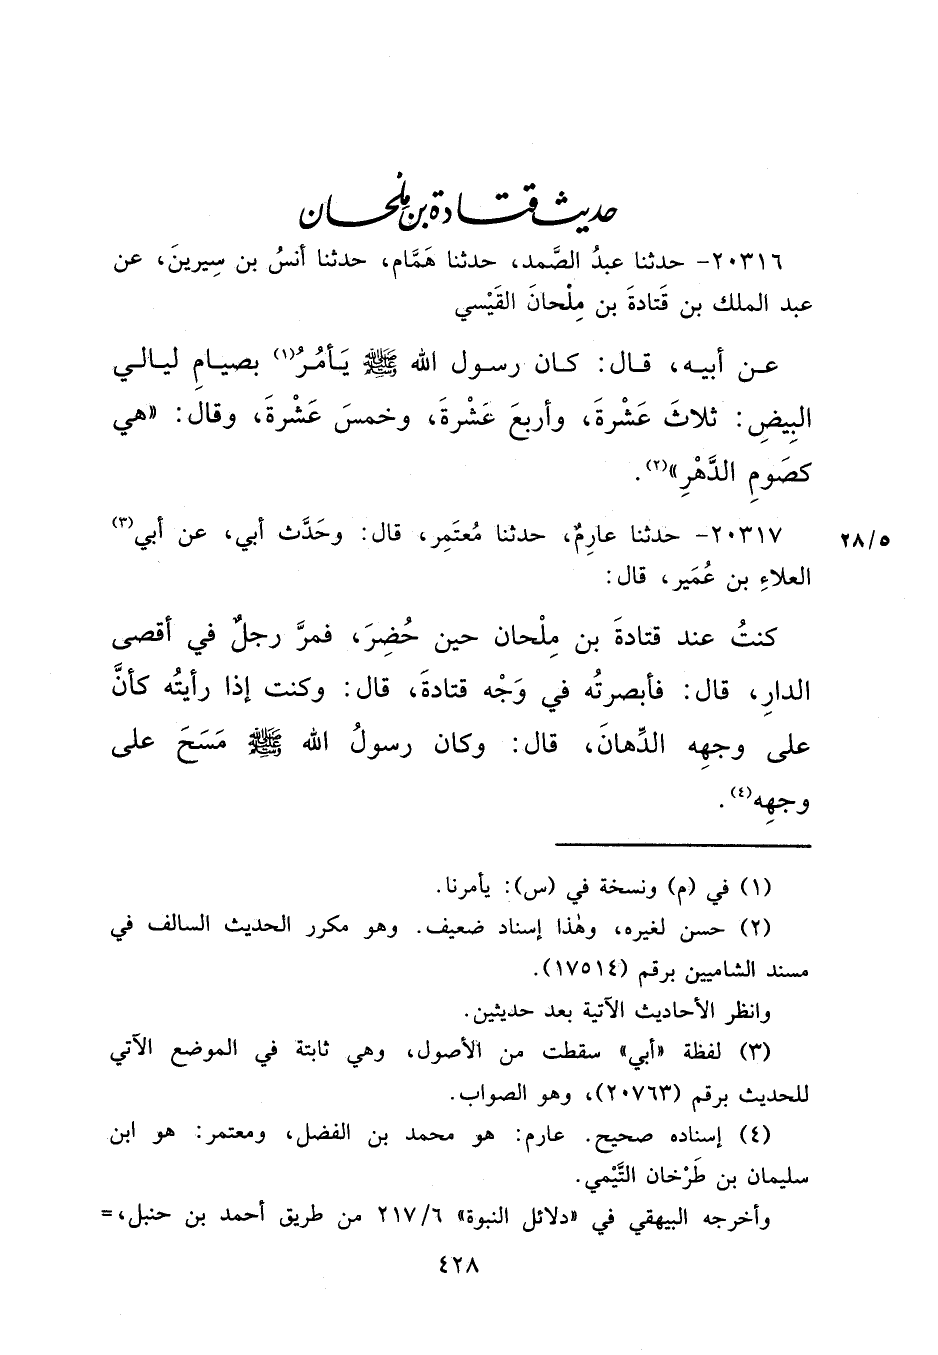 حديث قتادة بن ملحان
٢٠٣١٦- حدثنا عبدُ الصَّمد، حدثنا هَمَّام، حدثنا أنسُ بن سِيرينَ، عن
عبد الملك بن قَتادةَ بن مِلْحانَ القَيْسي
عن أبيه، قال: كان رسول الله ﷺ يَأمُرُ(١) بصيامِ ليالي
البِيضِ: ثلاثَ عَشْرةَ، وأربعَ عَشْرةَ، وخمسَ عَشْرةَ، وقال: «هي
كصَومِ الدَّهْرِ»(٢).
٢٠٣١٧- حدثنا عارِمٌ، حدثنا مُعتَمِر، قال: وحَدَّث أبي، عن أبي(٣)
٢٨/٥
العلاءِ بن عُمَير، قال:
كنتُ عند قتادةَ بن مِلْحان حين حُضِرَ، فمرَّ رجلٌ في أقصى
الدارِ، قال: فأبصرتُه في وَجْه قتادةَ، قال: وكنت إذا رأيتُه كأنَّ
على وجهِه الدِّهانَ، قال: وكان رسولُ الله ﷺ مَسَحَ على
وجهِه(٤).
(١) في (م) ونسخة في (س): يأمرنا.
(٢) حسن لغيره، وهٰذا إسناد ضعيف. وهو مكرر الحديث السالف في
مسند الشاميين برقم (١٧٥١٤).
وانظر الأحاديث الآتية بعد حديثين.
(٣) لفظة «أبي» سقطت من الأصول، وهي ثابتة في الموضع الآتي
للحديث برقم (٢٠٧٦٣)، وهو الصواب.
(٤) إسناده صحيح. عارم: هو محمد بن الفضل، ومعتمر: هو ابن
سليمان بن طَرْخان التَّيْمي.
وأخرجه البيهقي في «دلائل النبوة» ٢١٧/٦ من طريق أحمد بن حنبل،=
٤٢٨